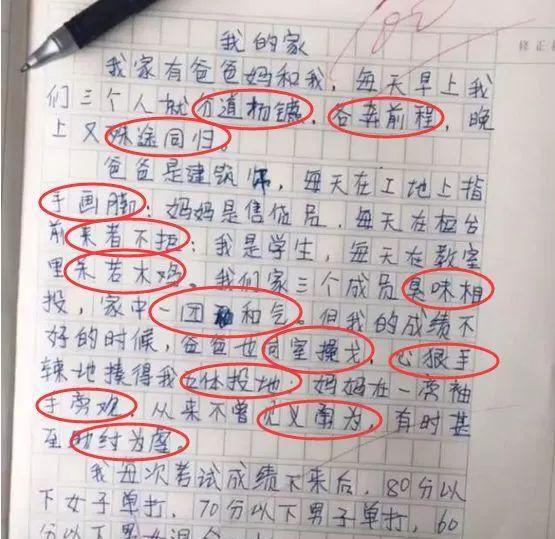 我的家
我家有爸爸妈和我，每天早上我
们三个人就分道扬镳，各奔前程，晚
上又殊途同归。
爸爸是建筑师，每天在工地上指
手画脚；妈妈是售货员，每天在柜台
前来者不拒；我是学生，每天在教室
里呆若木鸡。我们家三个成员臭味相
投，家中一团和气。但我的成绩不
好的时候，爸爸也同室操戈，心狠手
辣地揍得我五体投地。妈妈在一旁袖
手旁观，从来不曾见义勇为，有时甚
至助纣为虐。
我每次考试成绩下来后，80分以
下女子单打，70分以下男子单打，60
分以下男女混合
修正